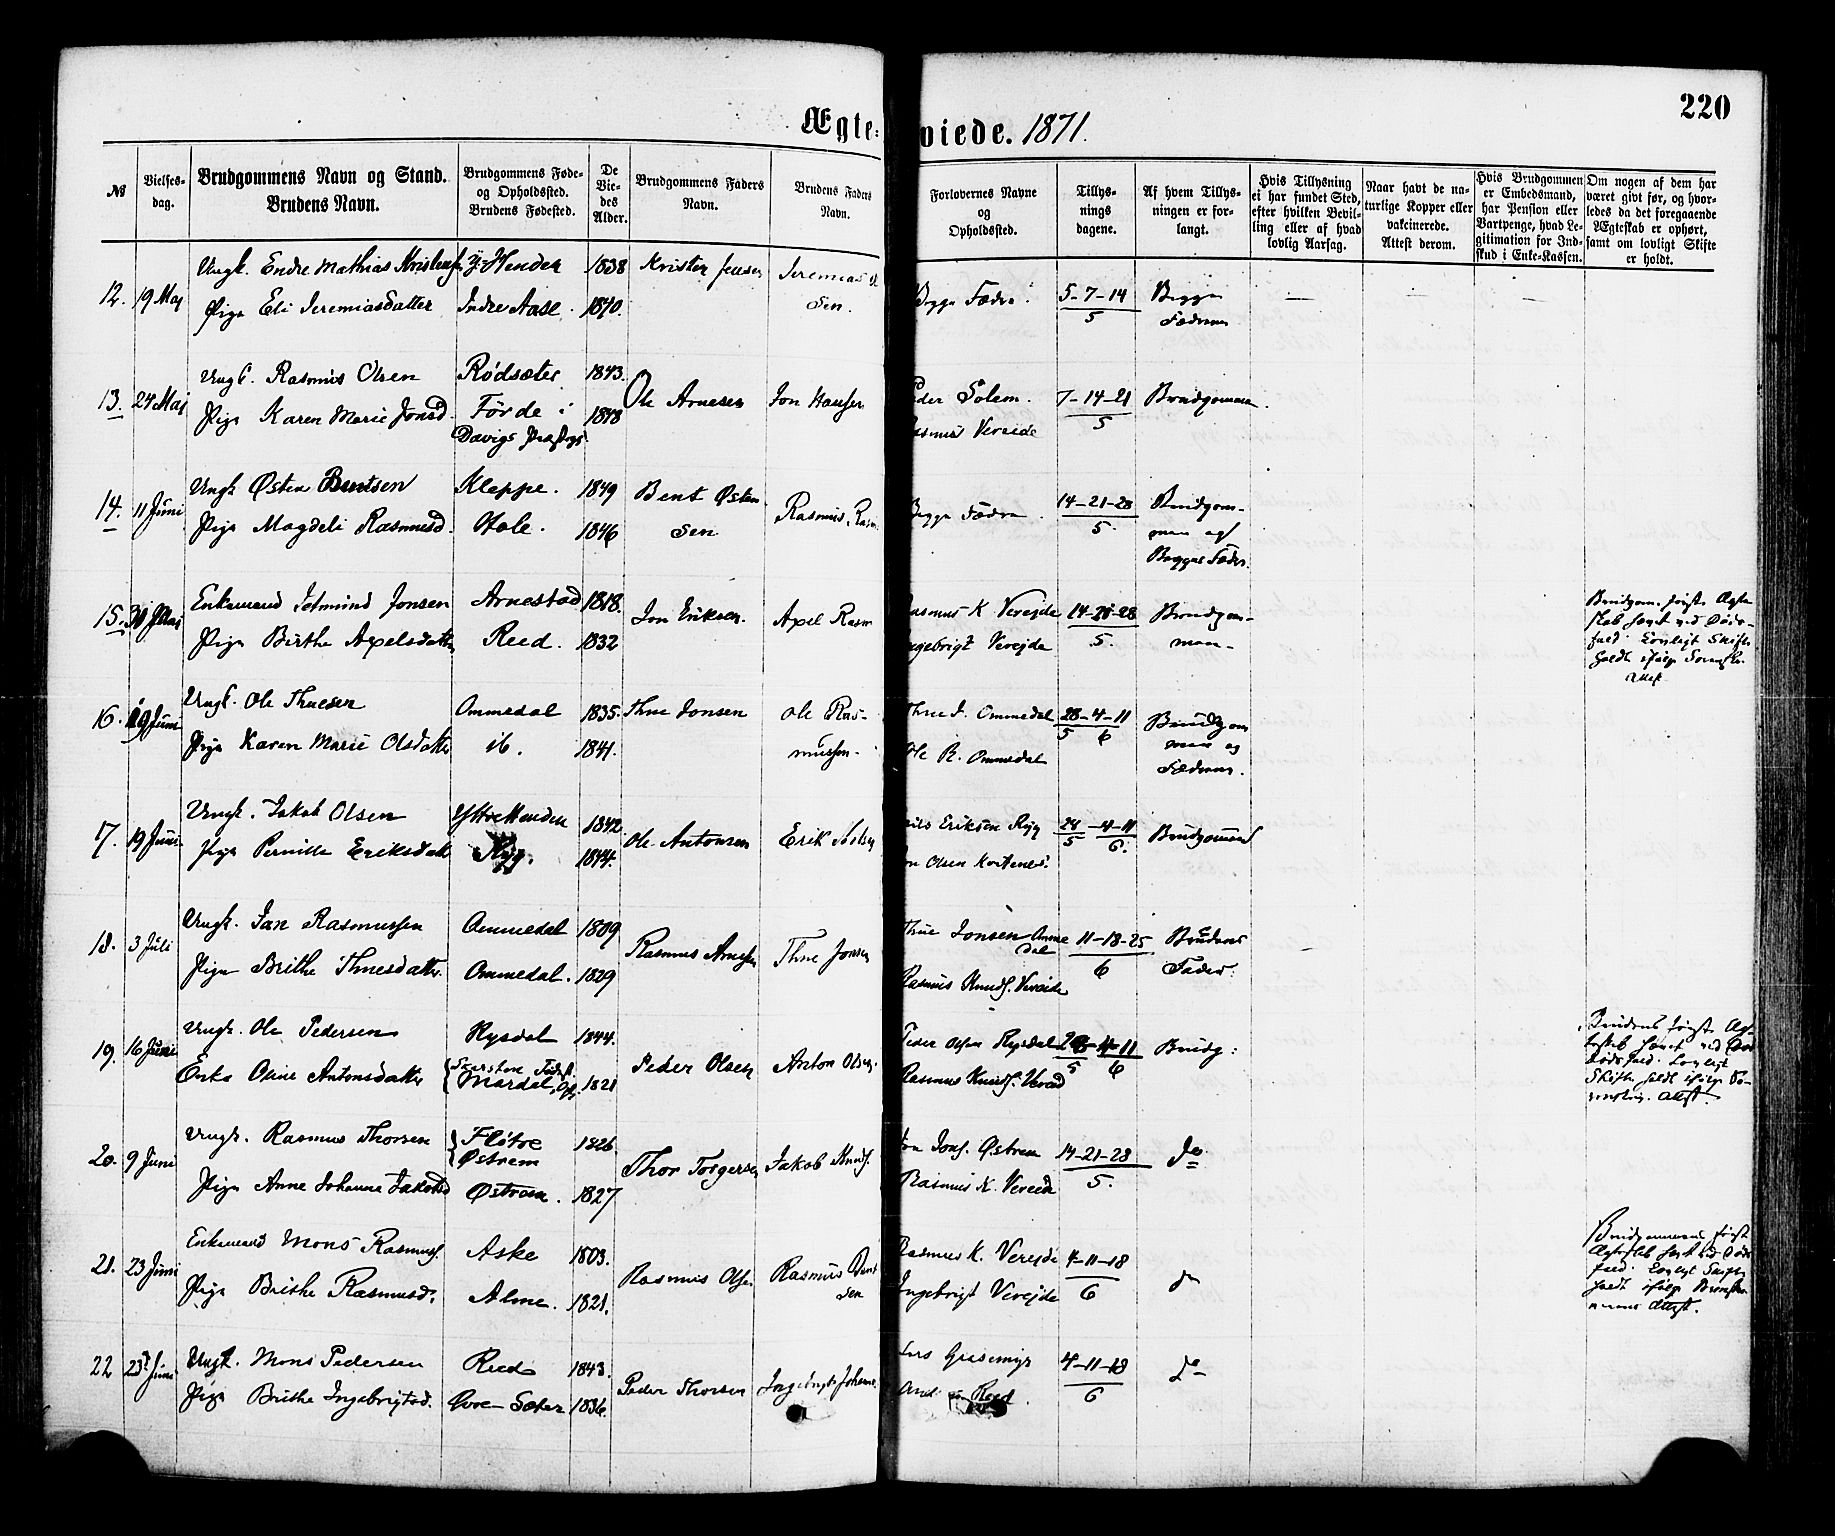 220
Ægteviede. 1871.
№
Vielsesdag.
Brudgommens Navn og Stand.
Brudens Navn.
Brudgommens Føde- og Opholdssted.
Brudens Fødested.
De Viedes Alder.
Brudgommens Faders Navn.
Brudens Faders Navn.
Forlovernes Navne og Opholdssted.
Tillysningsdagene.
Af hvem Tillysningen er forlangt.
Hvis Tillysning ei har fundet Sted, efter hvilken Bevilling eller af hvad lovlig Aarsag.
Naar havt de naturlige Kopper eller vakcinerede. Attest derom.
Hvis Brudgommen er Embedsmand, har Pension eller Vartpenge, hvad Legitimation for Indskud i Enke-Kassen.
Om nogen af dem har været givt før, og hvorledes da det foregaaende Ægteskab er ophørt, samt om lovligt Skifte er holdt.
12. 19 Maj Ungk. Endre Mathias Y. Henden 1838 Krister Jensen Jeremias
Pige Eli Jeremiasdatter Indre Aase. 1840. sen.
Begge Fædre. 5-7-14 / 5 Begge Fædrene
13. 24 Maj Ungk. Rasmus Olsen Rødsæter 1843. Ole Arnesen Jon Hansen
Pige Karen Marie Jonsd. Førde i 1848
Davigs
Peder Solem. 7-14-21 / 5 Brudgommen.
Rasmus Vereide
14. 11 Juni Ungk. Østen Bentsen Kleppe. 1849 Bent Østensen
Pige Magdeli Rasmusd. Hole. 1846 Rasmus Rasm.
Begge Fædre 14-21-28 / 5. Brudgommen og Begges Fædre.
15. Enkemand Jetmund Jonsen Arnestad 1818. Jon Eriksen. Axel Rasm
Pige Birthe Axelsdatter Reed. 1832
Rasmus K. Vereide 14-21-28 / 5. Brudgommen.
Ingebrigt Vereide
Brudgom. første Ægteskab hævet ved Dødsfald. Lovligt Skifte holdt ifølge Attest.
16. 19 Juni Ungk. Ole Thuesen Ommedal 1835. Thue Jonsen Ole Rasmussen.
Pige Karen Marie Olsdatter ib. 1841.
Thue J. Ommedal 28-4-11 / 5 6 Brudgommen og Fædrene.
Ole R. Ommedal
17. 19 Juni Ungk. Jakob Olsen Ytre Henden 1842 Ole Antonsen Erik
Pige Pernille Eriksdatt Ryg. 1844.
Eriksen Ryg -4-11 / 5 6. Brudgommen
Olsen Kortenes.
18. 3 Juli Ungk. Jan Rasmussen Ommedal 1809 Rasmus Arnesen Thue Jonsen
Pige Brithe Thuesdatter. Ommedal. 1829
Thue Jonsen Ommedal 11-18-25 / 6 Brudens Fader.
Rasmus Knuds. Vereide
19. 16 Juni Ungk. Ole Pedersen Rysdal 1844. Peder Olsen Anton Olsen.
Enke Oline Antonsdatter Mardal, Opg. 1821
Peder Olsen Rysdal -4-11 / 5 6 Brudg:
Rasmus Knuds. Vereid
Brudens første Ægteskab hævet ved Dødsfald. Lovligt Skifte holdt ifølge Attest.
20. 9 Juni Ungk. Rasmus Thorsen Fløtre 1826. Thor Torgersen Jakob Knuds.
Østrem
Pige Anne Johanne Jakobsd Østrem. 1827
Jon Jons. Østrem 14-21-28 / 5. do
Rasmus K. Vereide
21. 23 Juni Enkemand Mons Rasmuss. Aske 1803. Rasmus Olsen Rasmus Bentsen
Pige Brithe Rasmusd. Alme. 1821.
Rasmus K. Vereide 4-11-18 / 6 do
Ingebrigt Vereide
Brudgommens første Ægteskab hævet ved Dødsfald. Lovligt Skifte holdt ifølge Attest.
22 23 Juni Ungk. Mons Pedersen Reed 1843. Peder Thorsen Ingebrigt Johann.
Pige Brithe Ingebrigtsd. Øvre-Sæter 1836.
Lars 4-11-18 / 6 do
And. Reed